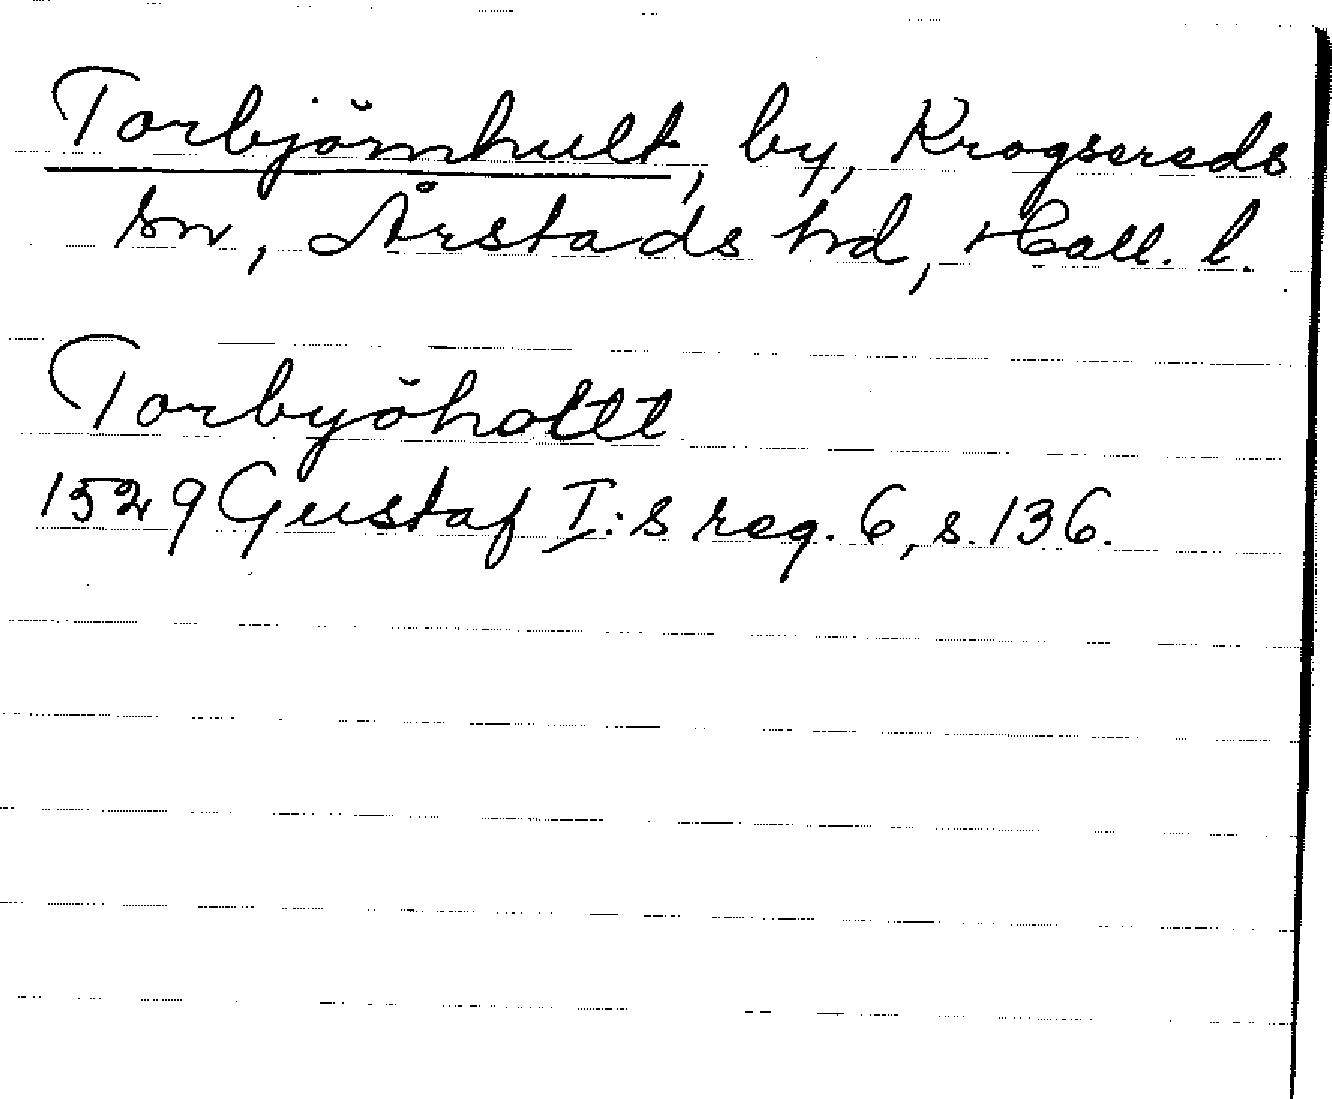 Torbjörnhult, by, Krogsereds
sn, Årstads hd, Hall. l.
Torbyöholtt
1529 Gustaf I:s reg. 6, s. 136.